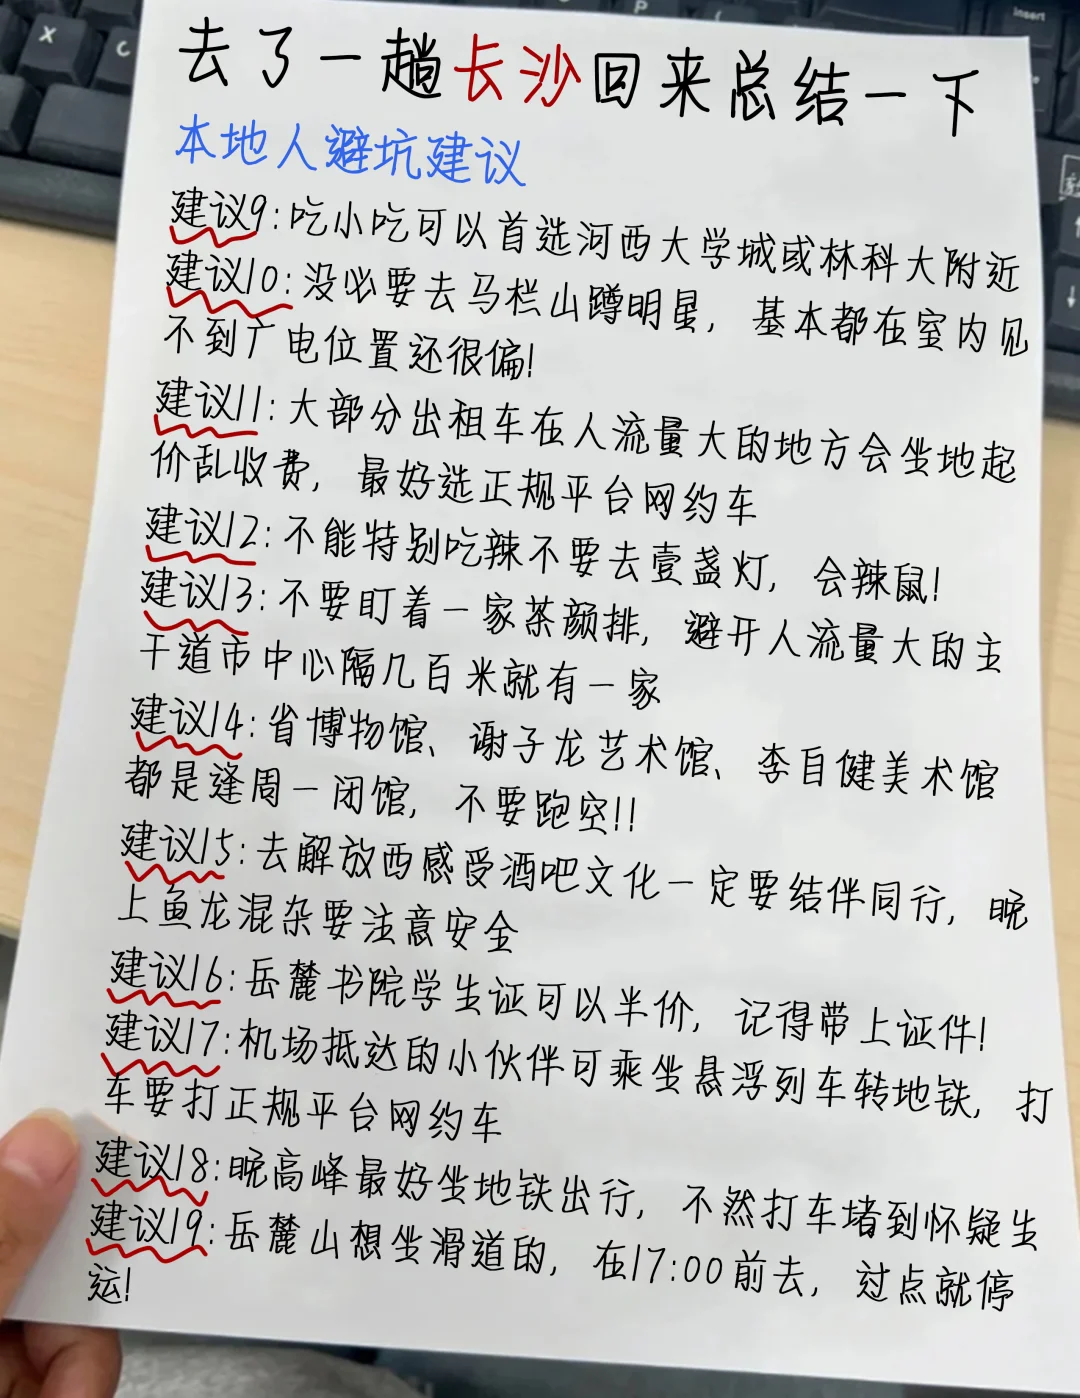 去了一趟长沙回来总结一下
本地人避坑建议
建议9:吃小吃可以首选河西大学城或林科大附近
建议10:没必要去马栏山蹲明星,基本都在室内见
不到广电位置还很偏!
建议11:大部分出租车在人流量大的地方会坐地起
价乱收费,最好选正规平台网约车
建议12:不能特别吃辣不要去壹盏灯,会辣鼠!
建议13:不要盯着一家茶颜排,避开人流量大的主
干道市中心隔几百米就有一家
建议14:省博物馆、谢子龙艺术馆、李自健美术馆
都是逢周一闭馆,不要跑空!!
建议15:去解放西感受酒吧文化一定要结伴同行,晚
上鱼龙混杂要注意安全
建议16:岳麓书院学生证可以半价,记得带上证件!
建议17:机场抵达的小伙伴可乘坐悬浮列车转地铁,打
车要打正规平台网约车
建议18:晚高峰最好坐地铁出行,不然打车堵到怀疑生
建议19:岳麓山想坐滑道的,在17:00前去,过点就停
运!
X
C
P
Insert